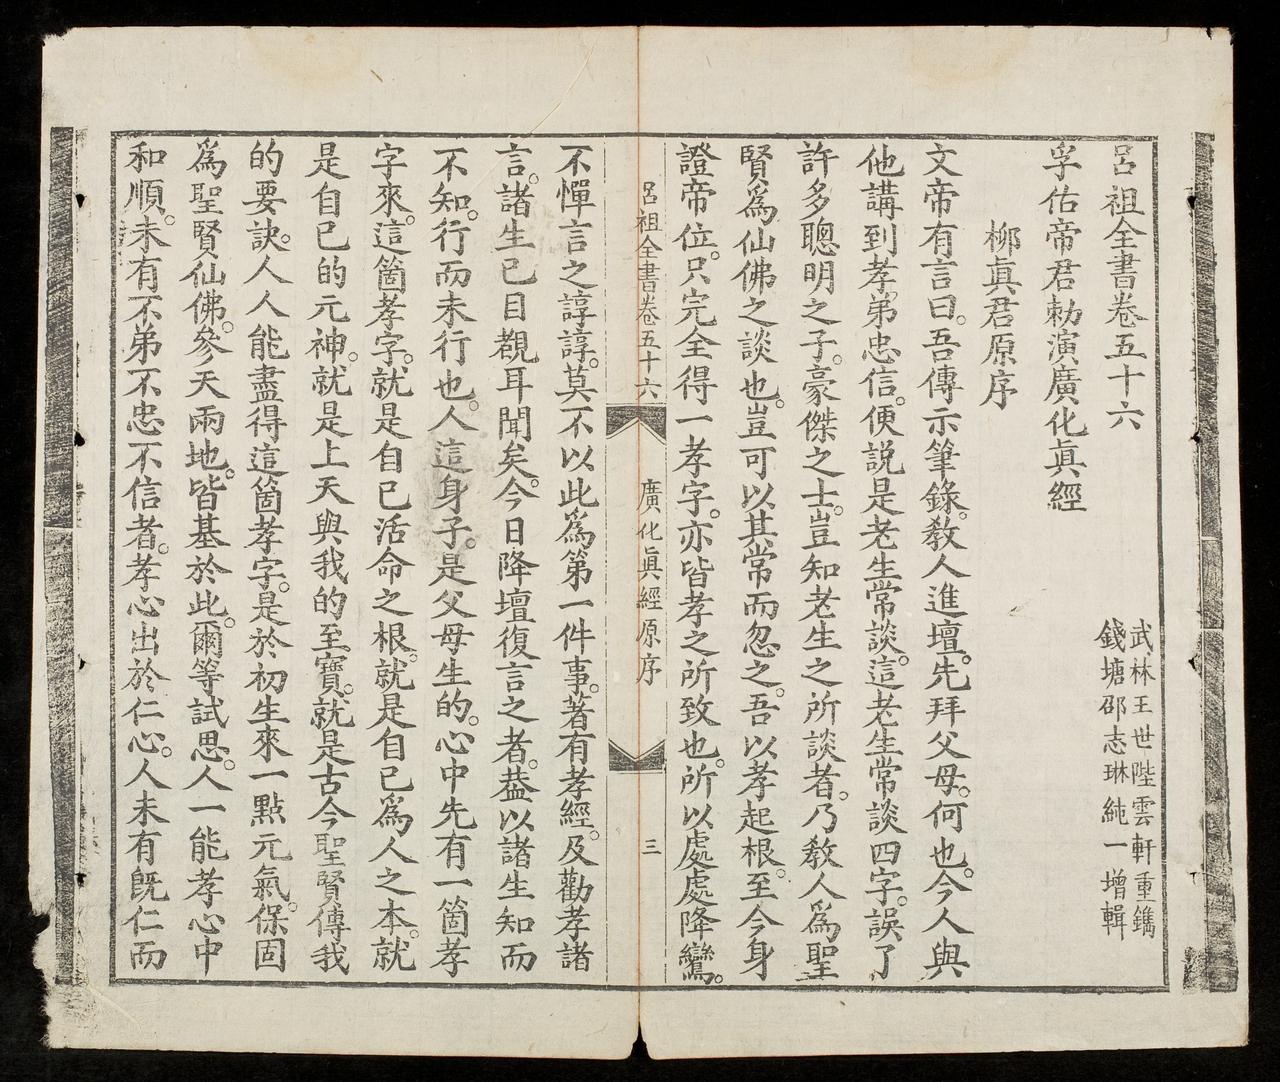 呂祖全書卷五十六
武林王世陛雲軒重鐫
錢塘邵志琳純一增輯
孚佑帝君勅演廣化眞經
柳眞君原序
文帝有言曰。吾傳示筆錄。敎人進壇。先拜父母。何也。今人與
他講到孝弟忠信。便説是老生常談。這老生常談四字。誤了
許多聰明之子。豪傑之士。豈知老生之所談者。乃敎人為聖
賢為仙佛之談也。豈可以其常而忽之。吾以孝起根。至今身
證帝位。只完全得一孝字。亦皆孝之所致也。所以處處降鸞。
呂祖全書卷五十六　廣化眞經原序　三
不憚言之諄諄。莫不以此為第一件事。著有孝經。及勸孝諸
言。諸生已目覩耳聞矣。今日降壇復言之者。葢以諸生知而
不知。行而未行也。人這身子。是父母生的。心中先有一箇孝
字來。這箇孝字。就是自己活命之根。就是自己為人之本。就
是自己的元神。就是上天與我的至寶。就是古今聖賢傳我
的要訣。人人能盡得這箇孝字。是於初生來一點元氣。保固
為聖賢仙佛。參天兩地。皆基於此。爾等試思。人一能孝心中
和順。未有不弟不忠不信者。孝心出於仁心。人未有旣仁而